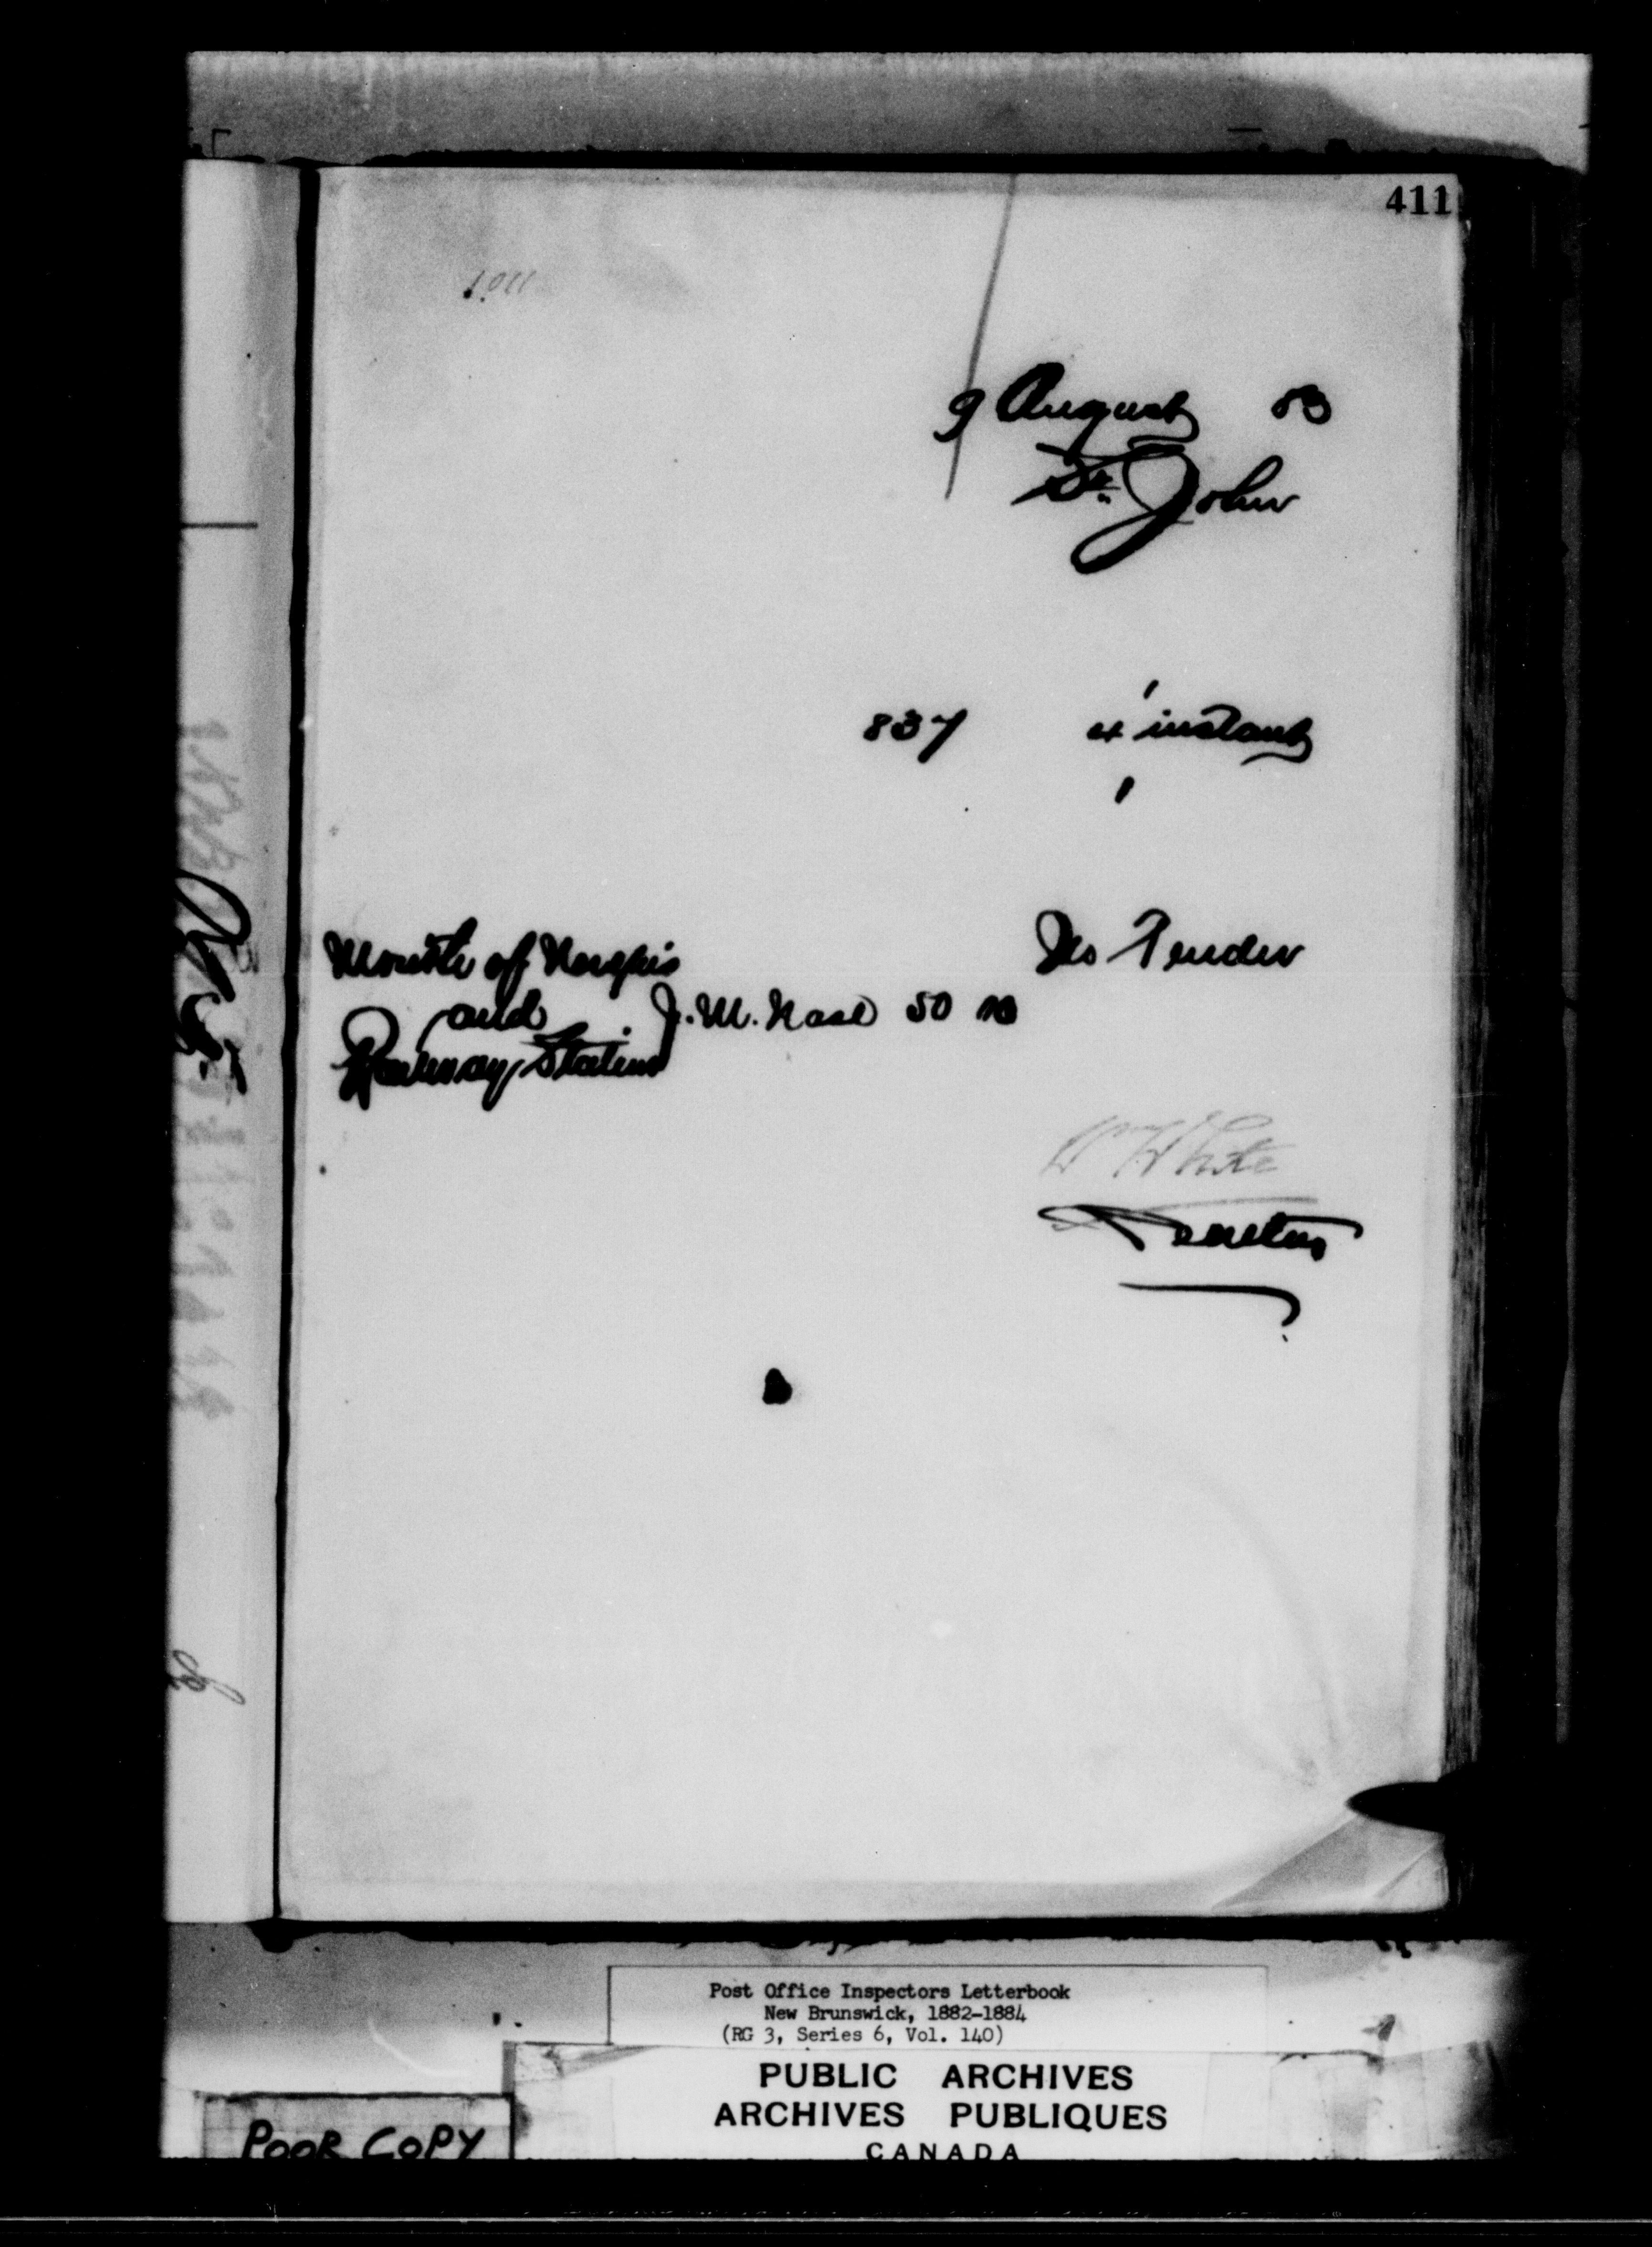 411
9 August 83
St. John
837 4 instant
No Tender
Mouth of Nerepis
and J. M. Nase 50 
Railway Station
W White
Secretary
Post Office Inspectors Letterbook
New Brunswick, 1882-1884
(RG 3, Series 6, Vol. 140)
PUBLIC ARCHIVES
ARCHIVES PUBLIQUES
CANADA
POOR COPY